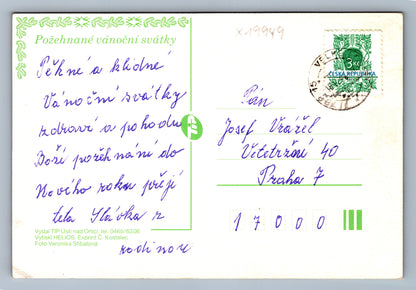 x-19949
Požehnané vánoční svátky
Pěkné a klidné
Vánoční svátky
zdraví a pohodu
Boží požehnání do
Nového roku přejí
teta Slávka z
rodinou
Vydal TIP Ústí nad Orlicí, tel. 0465/3206
Vytiskl HELIOS, Expirint Č. Kostelec
Foto Veronika Shbatová
3 Kč
ČESKÁ REPUBLIKA
Pán
Josef Vražel
Veletržní 40
Praha 7
17000